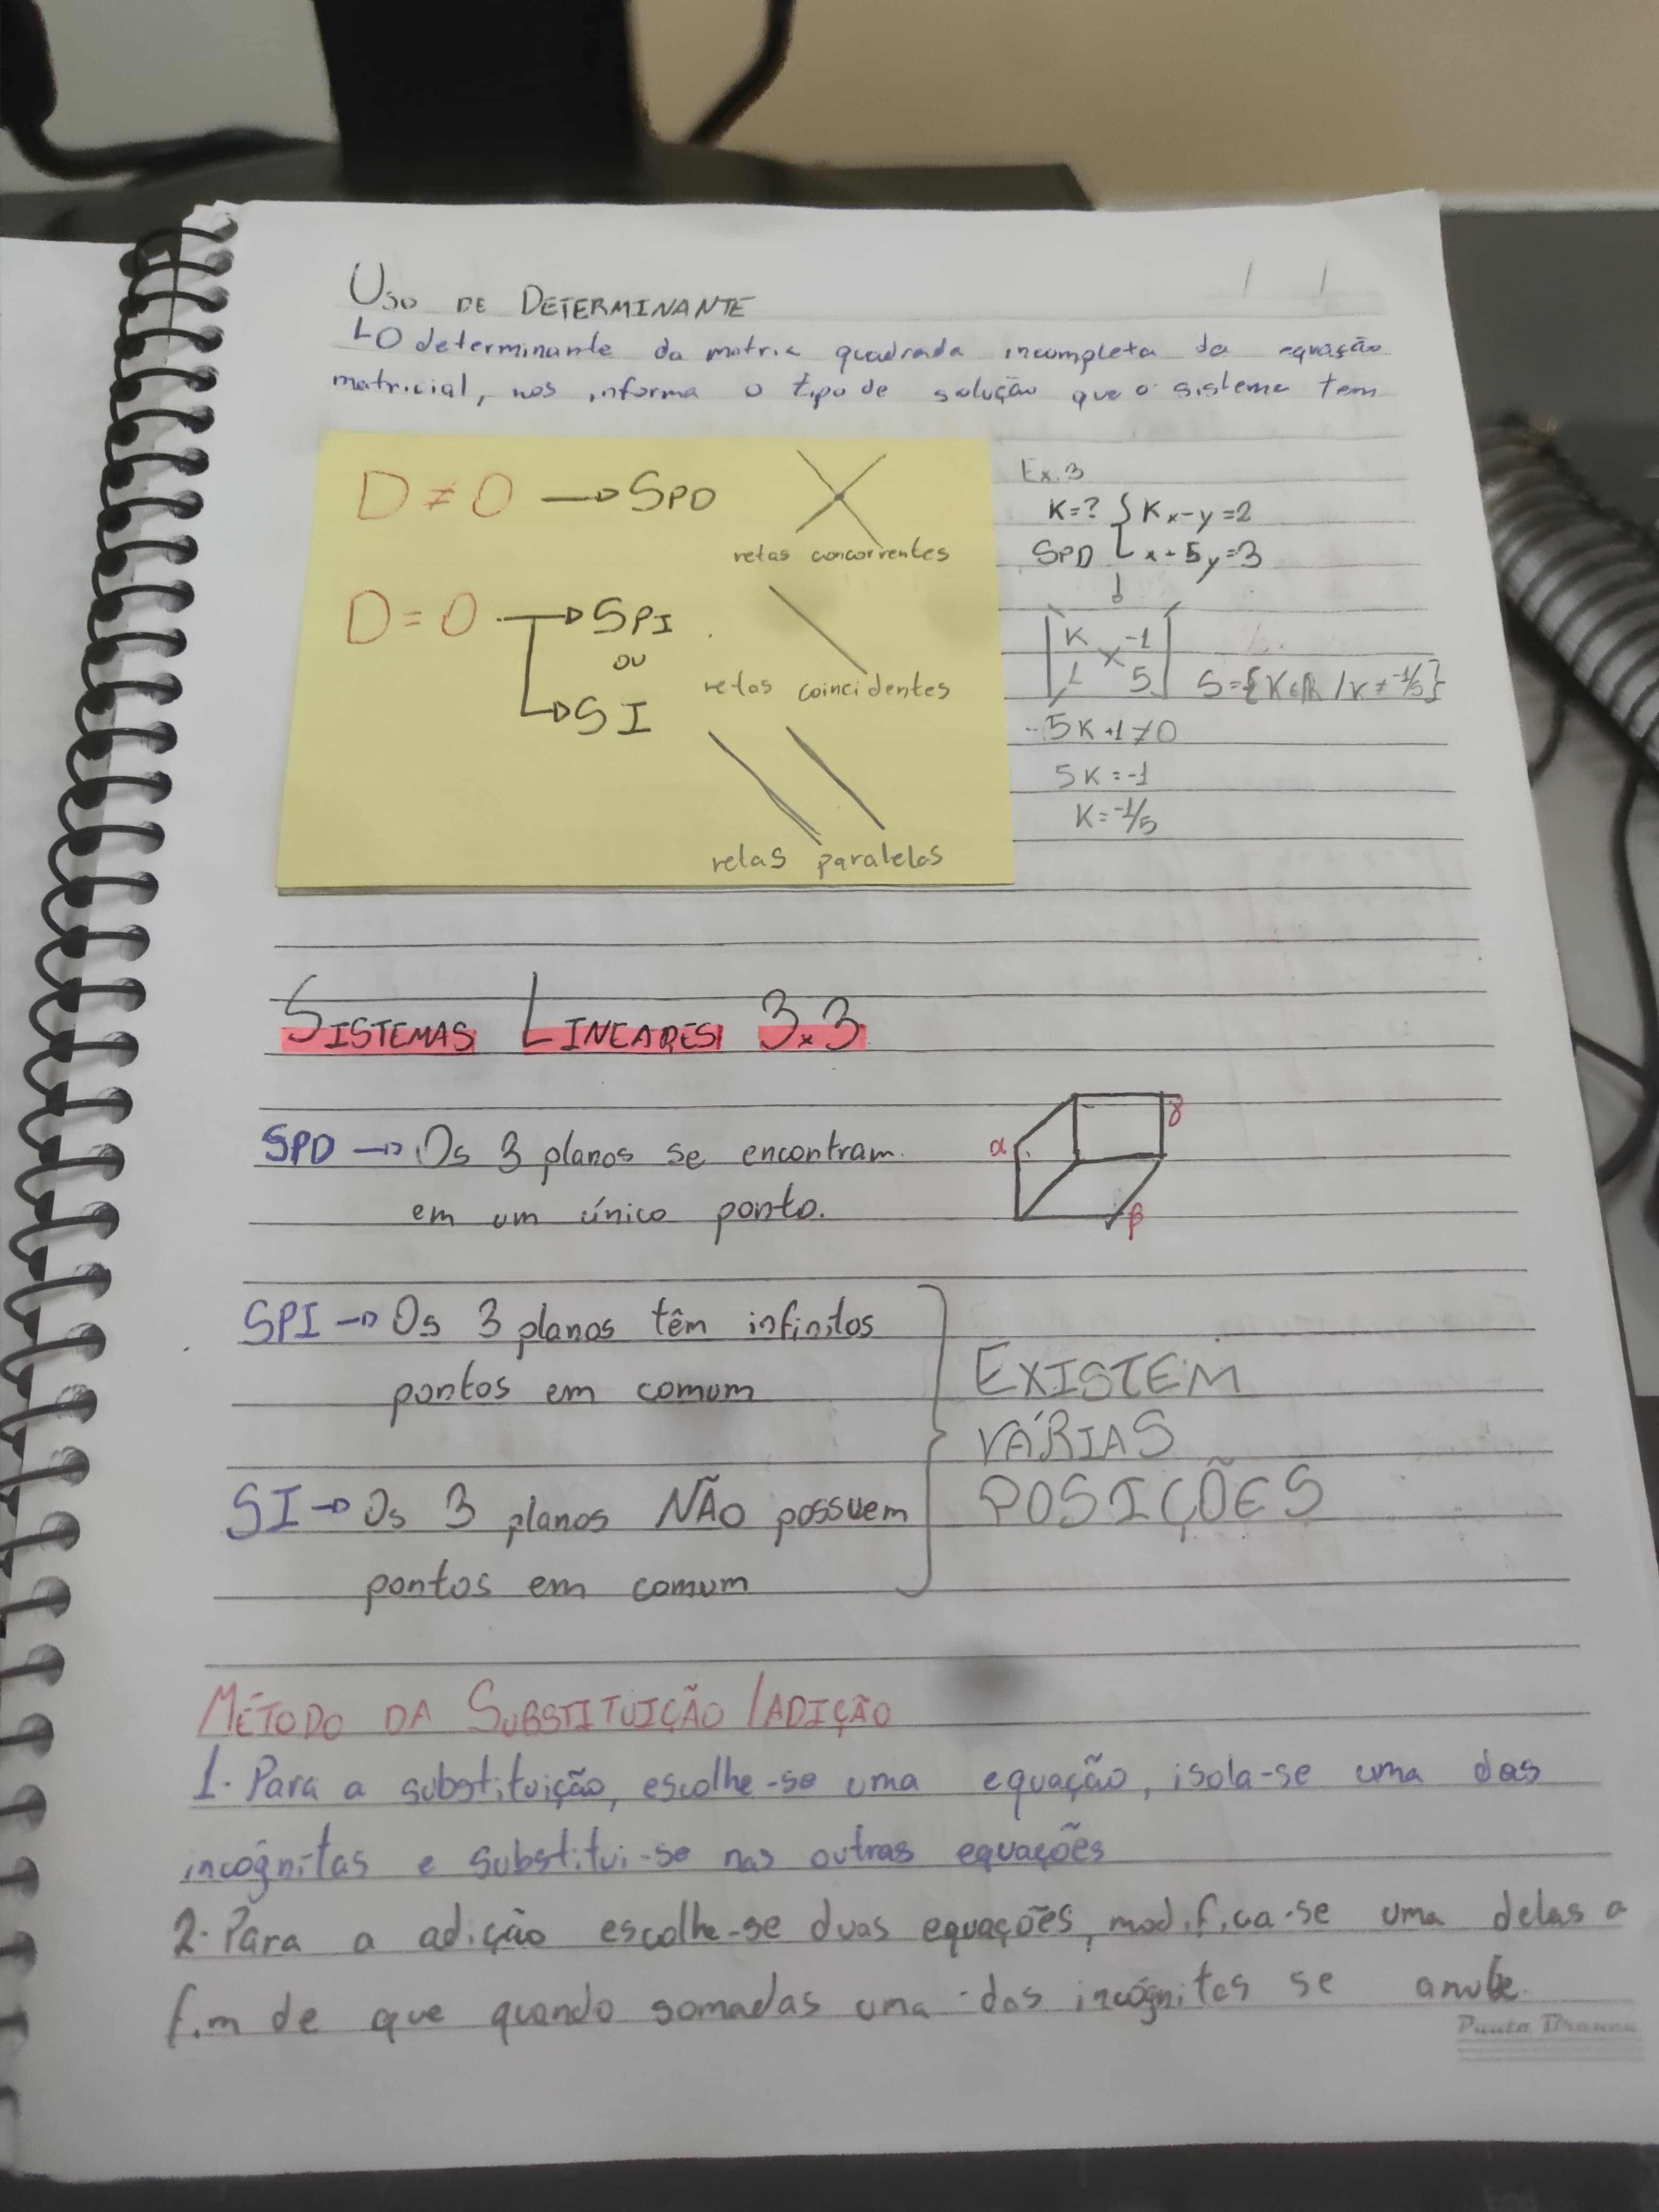 USO DE DETERMINANTE
O determinante da matriz quadrada incompleta da equação
matricial, nos informa o tipo de solução que o sistema tem
D ≠ 0 → SPD
retas concorrentes
D = 0 → SPI
ou
retas coincidentes
→ SI
retas paralelas
Ex.3
K=? { Kx-y=2
SPD x+5y=3
K -1
1 5
S={K∈R / K ≠ -1/5}
5K+1≠0
5K=-1
K=-1/5
SISTEMAS LINEARES 3x3
SPD → Os 3 planos se encontram
em um único ponto.
α γ
β
SPI → Os 3 planos têm infinitos
pontos em comum
SI → Os 3 planos NÃO possuem
pontos em comum
EXISTEM
VÁRIAS
POSIÇÕES
MÉTODO DA SUBSTITUIÇÃO / ADIÇÃO
1. Para a substituição, escolhe-se uma equação, isola-se uma das
incógnitas e substitui-se nas outras equações
2. Para a adição escolhe-se duas equações, modifica-se uma delas a
fim de que quando somadas uma das incógnitas se anule.
Pauta Branca